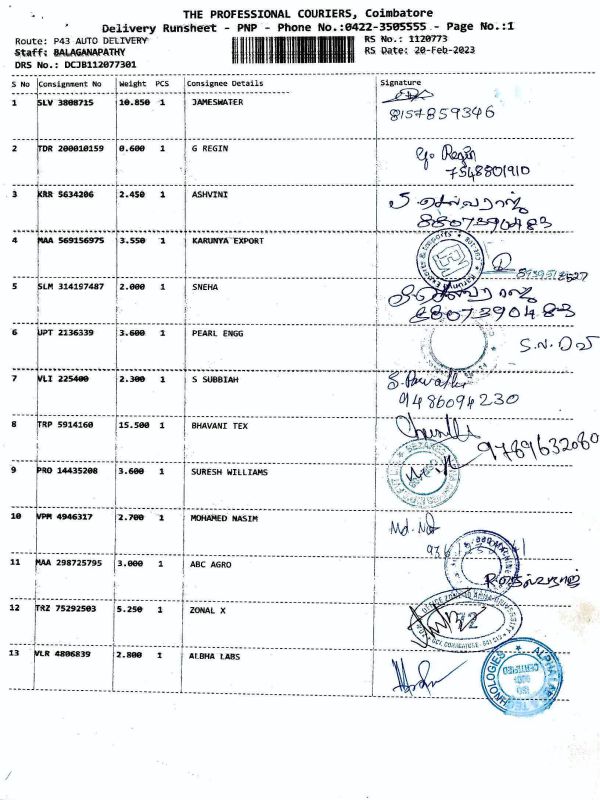 THE PROFESSIONAL COURIERS, Coimbatore
Delivery Runsheet - PNP - Phone No.:0422-3505555 - Page No.:1
Route: P43 AUTO DELIVERY RS No.: 1120773
Staff: BALAGANAPATHY RS Date: 20-Feb-2023
DRS No.: DCJB112077301
S No Consignment No Weight PCS Consignee Details Signature
1 SLV 3808715 10.850 1 JAMESWATER
8157859346
2 TDR 200010159 0.600 1 G REGIN G. Regin
7548801910
3 KRR 5634206 2.450 1 ASHVINI
8807390483
4 MAA 569156975 3.550 1 KARUNYA EXPORT
5 SLM 314197487 2.000 1 SNEHA
8807390483
6 UPT 2136339 3.600 1 PEARL ENGG
7 VLI 225400 2.300 1 S SUBBIAH
9486094230
8 TRP 5914160 15.500 1 BHAVANI TEX
9789632080
9 PRO 14435208 3.600 1 SURESH WILLIAMS
10 VPM 4946317 2.700 1 MOHAMED NASIM
11 MAA 298725795 3.000 1 ABC AGRO
12 TRZ 75292503 5.250 1 ZONAL X
13 VLR 4806839 2.800 1 ALBHA LABS